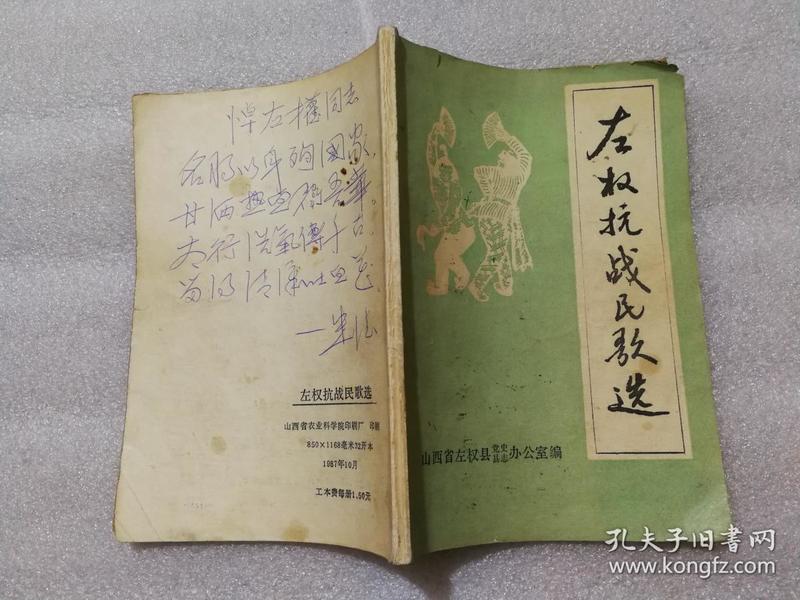 悼左權同志
名将以身殉國家
甘洒熱血衛吾華
太行浩氣傳千古
留得清漳吐血花
一朱德
左权抗战民歌选
山西省农业科学院印刷厂 印刷
850×1168毫米32开本
1987年10月
工本费每册1.50元
左权抗战民歌选
山西省左权县党史县志办公室编
孔夫子旧书网
www.kongfz.com